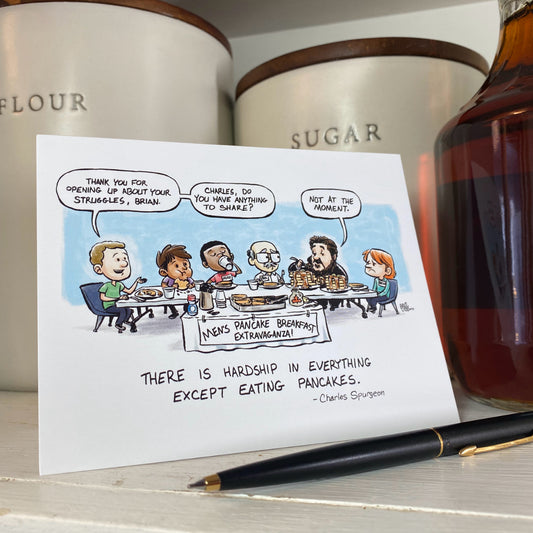 FLOUR
SUGAR
THANK YOU FOR
OPENING UP ABOUT YOUR
STRUGGLES, BRIAN.
CHARLES, DO
YOU HAVE ANYTHING
TO SHARE?
NOT AT THE
MOMENT.
MEN'S PANCAKE BREAKFAST
EXTRAVAGANZA!
THERE IS HARDSHIP IN EVERYTHING
EXCEPT EATING PANCAKES.
- Charles Spurgeon